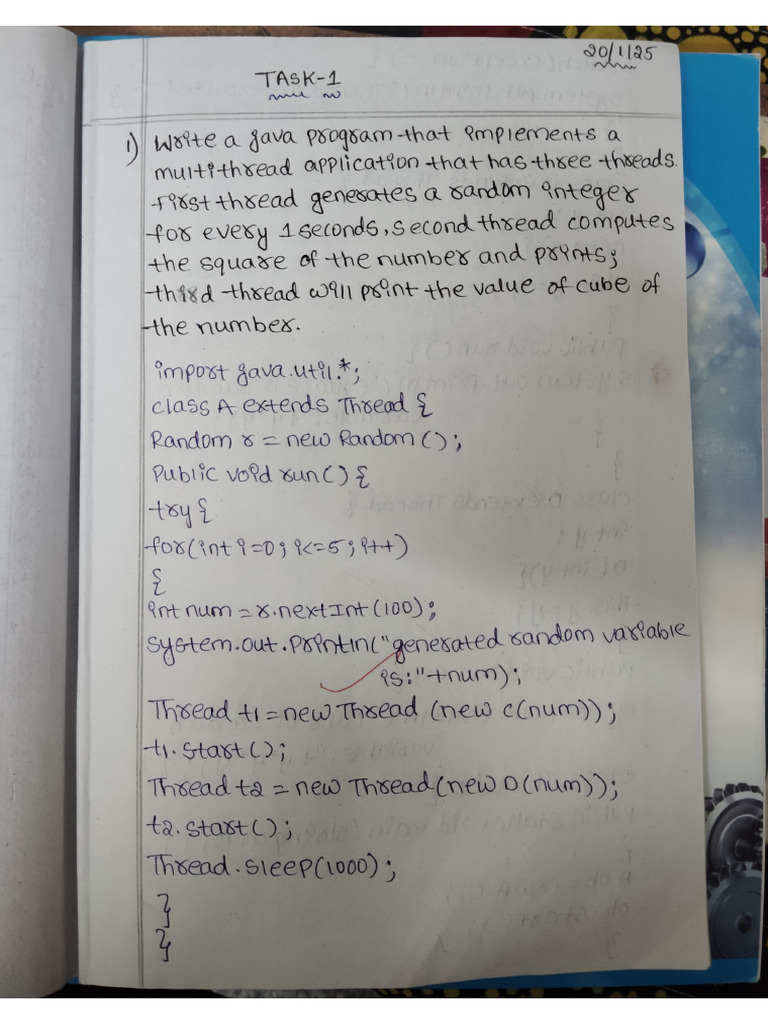 20/1/25
TASK-1
1) Write a java program that implements a
multithread application that has three threads.
First thread generates a random integer
for every 1 seconds, second thread computes
the square of the number and prints;
third thread will print the value of cube of
the number.
import java.util.*;
class A extends Thread {
Random r = new Random ();
Public void run() {
try {
for(int i=0; i<=5; i++)
{
int num = r.nextInt (100);
System.out.println("generated random variable
is:"+num);
Thread t1 = new Thread (new c(num));
t1.start();
Thread t2 = new Thread(new D(num));
t2.start();
Thread.sleep(1000);
}
}